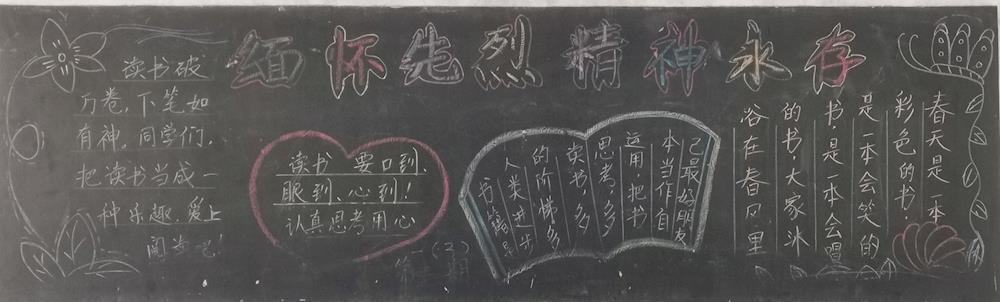 缅怀先烈 精神永存
读书破
万卷，下笔如
有神，同学们，
把读书当成一
种乐趣，爱上
阅读吧！
读书 要口到、
眼到、心到！
认真思考用心
书籍是
人类进步
的阶梯多
读书，多
思考，多
运用，把书
本当作自
己最好朋友
春天是一本
彩色的书，
是一本会笑的
书，是一本会唱
的书，大家沐
浴在春风里